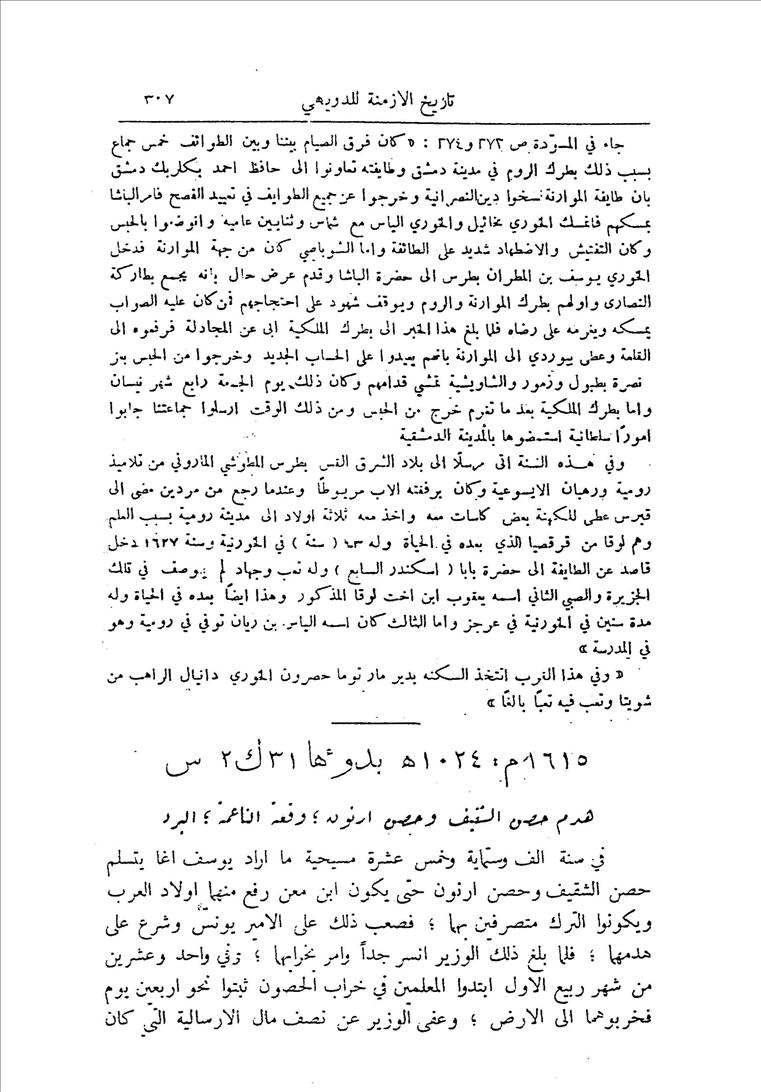 تاريخ الازمنة للدويهي ٣٠٧
جاء في المسوّدة ص ٢٧٢ و٢٧٤ : « كان فرق الصيام بيننا وبين الطوائف خمس جماع
بسبب ذلك بطرك الروم في مدينة دمشق وطايفته تعاونوا الى حافظ احمد بكلربك دمشق
بان طايفة الموارنة نسخوا دين النصرانية وخرجوا عن جميع الطوايف في تعييد الفصح فامر الباشا
بمسكهم فانمسك الخوري مخائيل والخوري الياس مع شماس وثنايين عاميه وانوضعوا بالحبس
وكان التفتيش والاضطهاد شديد على الطائفة واما الشوباصي كان من جهة الموارنة فدخل
الخوري يوسف بن المطران بطرس الى حضرة الباشا وقدم عرض حال بانه يجمع بطاركة
النصارى واولهم بطرك الموارنة والروم ويوقف شهود على احتجاجهم فمن كان عليه الصواب
يمسكه ويغرمه على رضاه فلما بلغ هذا الخبر الى بطرك الملكية ابى عن المجادلة فرفعوه الى
القلعة وعطى بيوردي الى الموارنة بانهم يعيدوا على الحساب الجديد وخرجوا من الحبس بعز
نصرة بطبول وزمور والشاويشية تمشي قدامهم وكان ذلك يوم الجمعة رابع شهر نيسان
واما بطرك الملكية بعد ما تغرم خرج من الحبس ومن ذلك الوقت ارسلوا جماعتنا جابوا
امورًا سلطانية استمضوها بالمدينة الدمشقية
وفي هذه السنة اتى مرسلًا الى بلاد الشرق القس بطرس المطوشي الماروني من تلاميذ
رومية ورهبان الايسوعية وكان برفقته الاب مريوطًا وعندما رجع من مردين مضى الى
قبرس عطى للكهنة بعض كاسات معه واخذ معه ثلاثة اولاد الى مدينة رومية بسبب العلم
وهم لوقا من قرقصيا الذي بعده في الحياة وله ( سنة ) في الخورنية وسنة ١٦٢٧ دخل
قاصد عن الطايفة الى حضرة بابا ( اسكندر السابع ) وله تعب وجهاد لم يوصف في تلك
الجزيرة والصبي الثاني اسمه يعقوب ابن اخت لوقا المذكور وهذا ايضًا بعده في الحياة وله
مدة سنين في الخورنية في عرجز واما الثالث كان اسمه الياس بن ريان توفي في رومية وهو
في المدرسة »
« وفي هذا القرب انتخذ السكنه بدير مار توما حصرون الخوري دانيال الراهب من
شويتا وتعب فيه تعبًا بالغًا »
١٦١٥م : ١٠٢٤ هـ بدوءها ٣١ ك٢ س
هدم حصن الشقيف وحصن ارنون ؛ وقعة الناعمة ؛ البرد
في سنة الف وستماية وخمس عشرة مسيحية ما اراد يوسف اغا يتسلم
حصن الشقيف وحصن ارنون حتّى يكون ابن معن رفع منهما اولاد العرب
ويكونوا الترك متصرفين بهما ؛ فصعب ذلك على الامير يونس وشرع على
هدمهما ؛ فلما بلغ ذلك الوزير انسر جداً وامر بخرابها ؛ وفي واحد وعشرين
من شهر ربيع الاول ابتدوا المعلمين في خراب الحصون ثبتوا نحو اربعين يوم
فخربوهما الى الارض ؛ وعفى الوزير عن نصف مال الارسالية التي كان